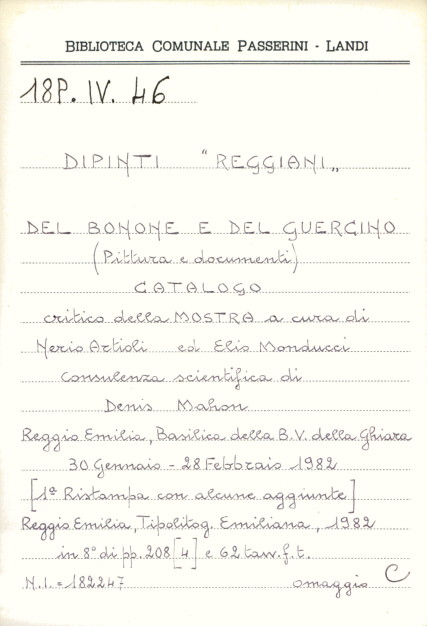 BIBLIOTECA COMUNALE PASSERINI - LANDI
18P. IV. 46
DIPINTI "REGGIANI"
DEL BONONE E DEL GUERCINO
(Pittura e documenti)
CATALOGO
critico della MOSTRA a cura di
Nerio Artioli ed Elio Monducci
Consulenza scientifica di
Denis Mahon
Reggio Emilia, Basilica della B.V. della Ghiara
30 Gennaio - 28 Febbraio 1982
[1ª Ristampa con alcune aggiunte]
Reggio Emilia, Tipolitog. Emiliana, 1982
in 8° di pp. 208 [4] e 62 tav. f.t.
N.I. = 182247 omaggio C